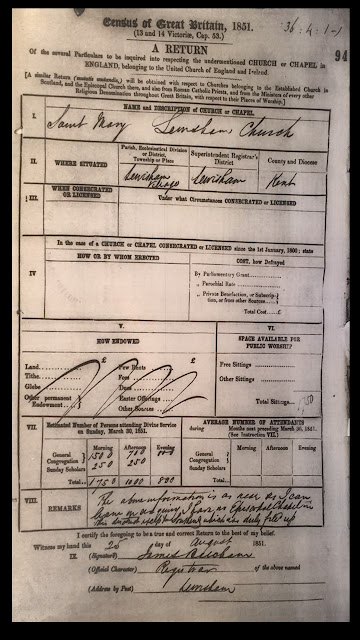 36-4-1-1
Census of Great Britain, 1851.
(13 and 14 Victoriæ, Cap. 53.)
94
A RETURN
Of the several Particulars to be inquired into respecting the undermentioned CHURCH or CHAPEL in
ENGLAND, belonging to the United Church of England and Ireland.
[A similar Return (mutatis mutandis,) will be obtained with respect to Churches belonging to the Established Church in
Scotland, and the Episcopal Church there, and also from Roman Catholic Priests, and from the Ministers of every other
Religious Denomination throughout Great Britain, with respect to their Places of Worship.]
I. NAME and DESCRIPTION of CHURCH or CHAPEL.
Saint Mary Lewisham Church
II. WHERE SITUATED
Parish, Ecclesiastical Division or District, Township or Place
Lewisham Village
Superintendent Registrar's District
Lewisham
County and Diocese
Kent
III. WHEN CONSECRATED OR LICENSED
Under what Circumstances CONSECRATED or LICENSED
In the case of a CHURCH or CHAPEL CONSECRATED or LICENSED since the 1st January, 1800; state
IV
HOW OR BY WHOM ERECTED
COST, how Defrayed
By Parliamentary Grant
„ Parochial Rate
„ Private Benefaction, or Subscription, or from other Sources
Total Cost £
V.
HOW ENDOWED
£
£
Land
Tithe
Glebe
Other permanent Endowment
Pew Rents
Fees
Dues
Easter Offerings
Other Sources
VI.
SPACE AVAILABLE FOR PUBLIC WORSHIP
Free Sittings
Other Sittings
Total Sittings
VII.
Estimated Number of Persons attending Divine Service on Sunday, March 30, 1851.
Morning Afternoon Evening
General Congregation 1500
Sunday Scholars 250 250
Total 1750
AVERAGE NUMBER OF ATTENDANTS
during Months next preceding March 30, 1851.
(See Instruction VII.)
Morning Afternoon Evening
General Congregation
Sunday Scholars
Total
VIII. REMARKS
The above information is as near as I can
I certify the foregoing to be a true and correct Return to the best of my belief.
Witness my hand this 25 day of August 1851.
IX. (Signature) James
(Official Character) Registrar of the above named
(Address by Post) Lewisham